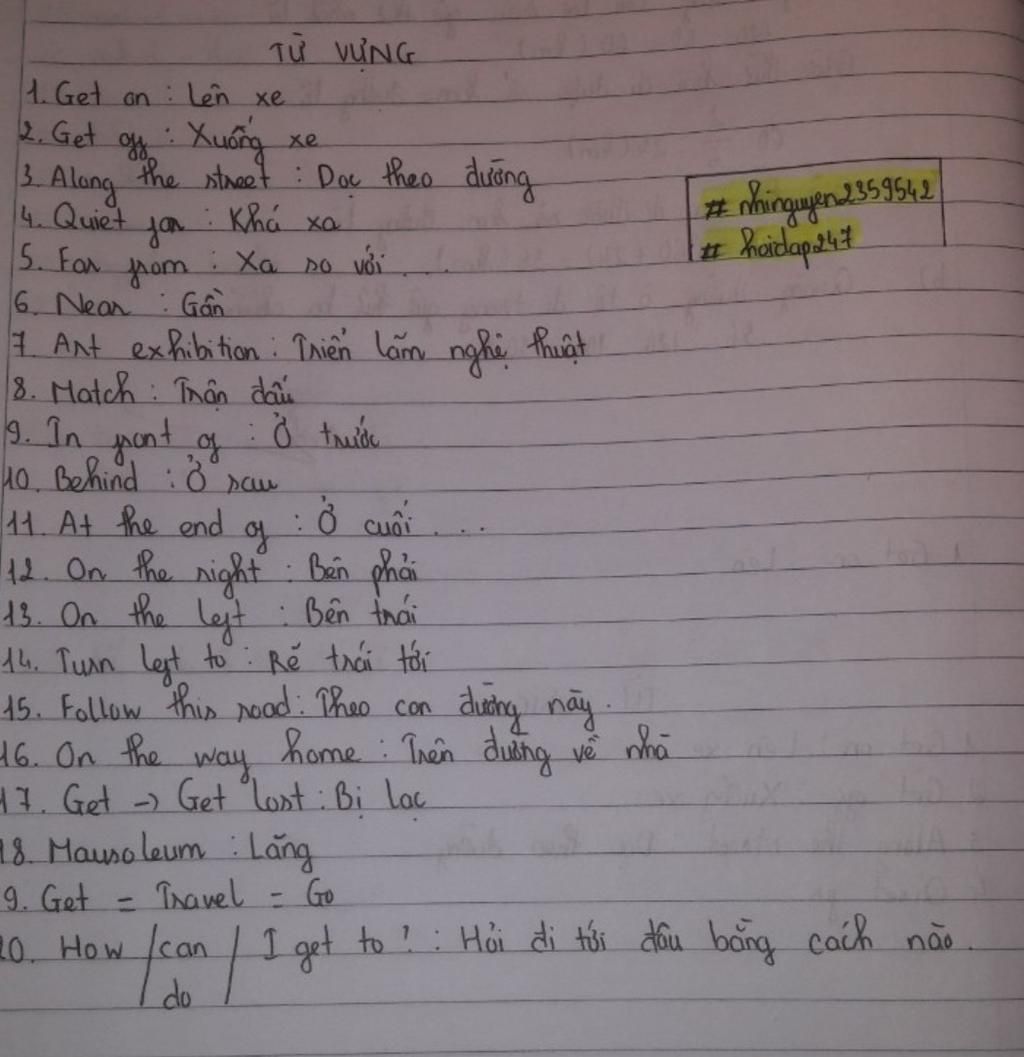 TỪ VỰNG
1. Get on : Lên xe
2. Get off : Xuống xe
3. Along the street : Dọc theo đường
# nhinguyen2359542
4. Quiet far : Khá xa
# hoidap247
5. Far from : Xa so với ....
6. Near : Gần
7. Art exhibition : Triển lãm nghệ thuật
8. Match : Trận đấu
9. In front of : Ở trước
10. Behind : Ở sau
11. At the end of : Ở cuối ....
12. On the right : Bên phải
13. On the left : Bên trái
14. Turn left to : Rẽ trái tới
15. Follow this road : Theo con đường này.
16. On the way home : Trên đường về nhà
17. Get -> Get lost : Bị lạc
18. Mausoleum : Lăng
9. Get = Travel = Go
20. How / can / I get to ? : Hỏi đi tới đâu bằng cách nào.
/ do /